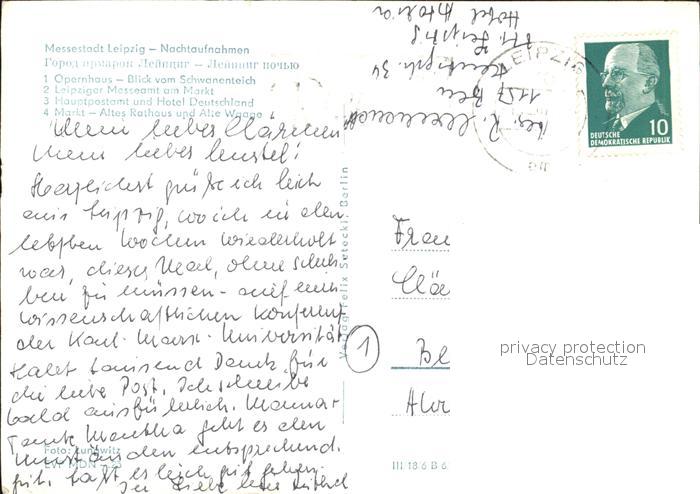 Messestadt Leipzig – Nachtaufnahmen
Город ярмарок Лейпциг – Лейпциг ночью
1 Opernhaus – Blick vom Schwanenteich
2 Leipziger Messeamt am Markt
3 Hauptpostamt und Hotel Deutschland
4 Markt – Altes Rathaus und Alte Waage
Mein liebes Clärchen
Mein liebes
Herzlichst grüße ich Euch
aus Leipzig, wo ich in den
letzten Wochen wiederholt
war, dieses Mal, ohne
zu müssen – auf einer
wissenschaftlichen Konferenz
der Karl-Marx-Universität
Habt tausend Dank für
die liebe Post. Ich schreibe
bald ausführlich.
Tante Martha geht es den
Umständen entsprechend
gut. Laßt es Euch gut gehen.
In Liebe
Foto:
Verlag Felix Setecki, Berlin
1
III 18 6 B 6
Abs. R.
1157 Bln
34
Leipzig
Hotel Astoria
LEIPZIG
DEUTSCHE
DEMOKRATISCHE REPUBLIK
10
Frau
Clä
Be
privacy protection
Datenschutz